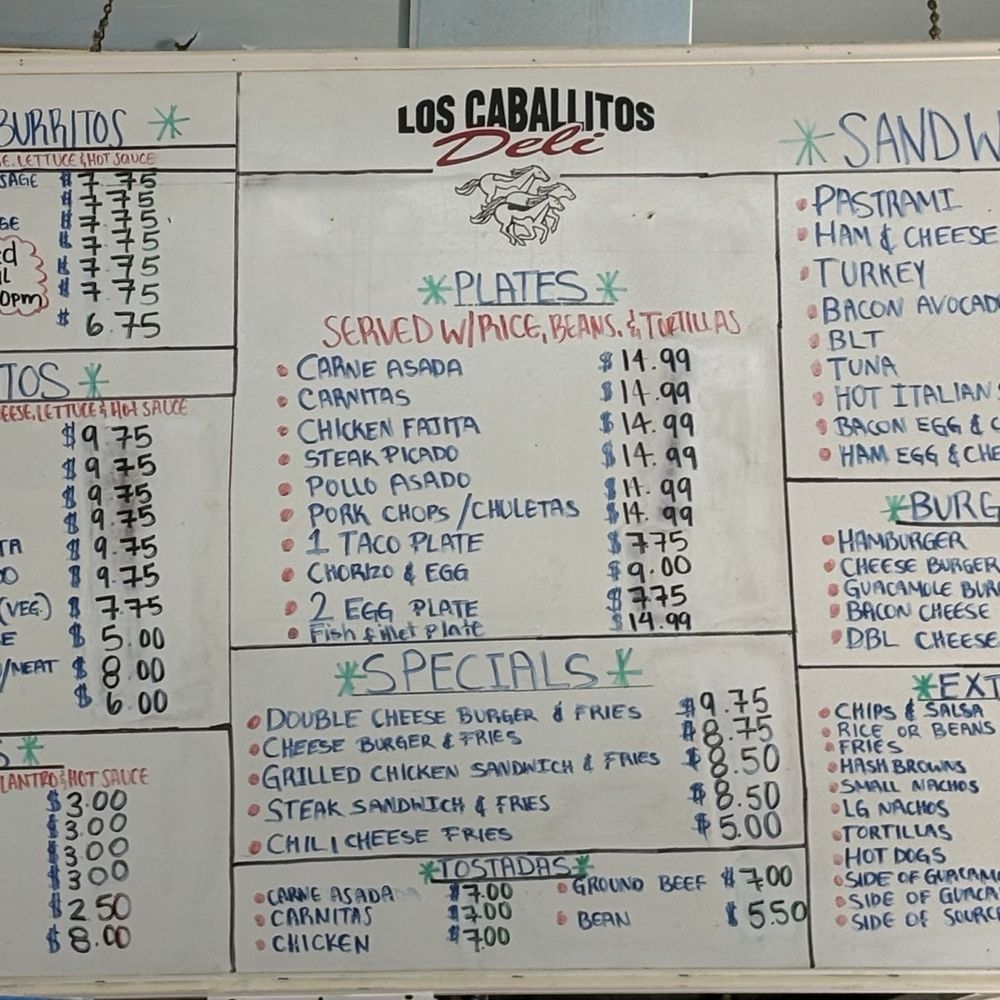 BURRITOS
LETTUCE & HOT SAUCE
$7.75
$7.75
$7.75
$7.75
$7.75
$7.75
$6.75
0pm
LETTUCE & HOT SAUCE
$9.75
$9.75
$9.75
$9.75
$9.75
$9.75
(VEG.) $7.75
$5.00
/MEAT $8.00
$6.00
& HOT SAUCE
$3.00
$3.00
$3.00
$3.00
$2.50
$8.00
LOS CABALLITOS
Deli
PLATES
SERVED W/RICE, BEANS, & TORTILLAS
CARNE ASADA $14.99
CARNITAS $14.99
CHICKEN FAJITA $14.99
STEAK PICADO $14.99
POLLO ASADO $14.99
PORK CHOPS/CHULETAS $14.99
1 TACO PLATE $7.75
CHORIZO & EGG $9.00
2 EGG PLATE $7.75
Fish fillet Plate $14.99
SPECIALS
DOUBLE CHEESE BURGER & FRIES $9.75
CHEESE BURGER & FRIES $8.75
GRILLED CHICKEN SANDWICH & FRIES $8.50
STEAK SANDWICH & FRIES $8.50
CHILI CHEESE FRIES $5.00
TOSTADAS
CARNE ASADA $7.00
CARNITAS $7.00
CHICKEN $7.00
GROUND BEEF $7.00
BEAN $5.50
SANDW
PASTRAMI
HAM & CHEESE
TURKEY
BACON AVOCAD
BLT
TUNA
HOT ITALIAN
BACON EGG & C
HAM EGG & CHE
BURG
HAMBURGER
CHEESE BURGER
GUACAMOLE BUR
BACON CHEESE
DBL CHEESE
EXT
CHIPS & SALSA
RICE OR BEANS
FRIES
HASH BROWNS
SMALL NACHOS
LG NACHOS
TORTILLAS
HOT DOGS
SIDE OF GUACAM
SIDE OF GUACA
SIDE OF SOURC